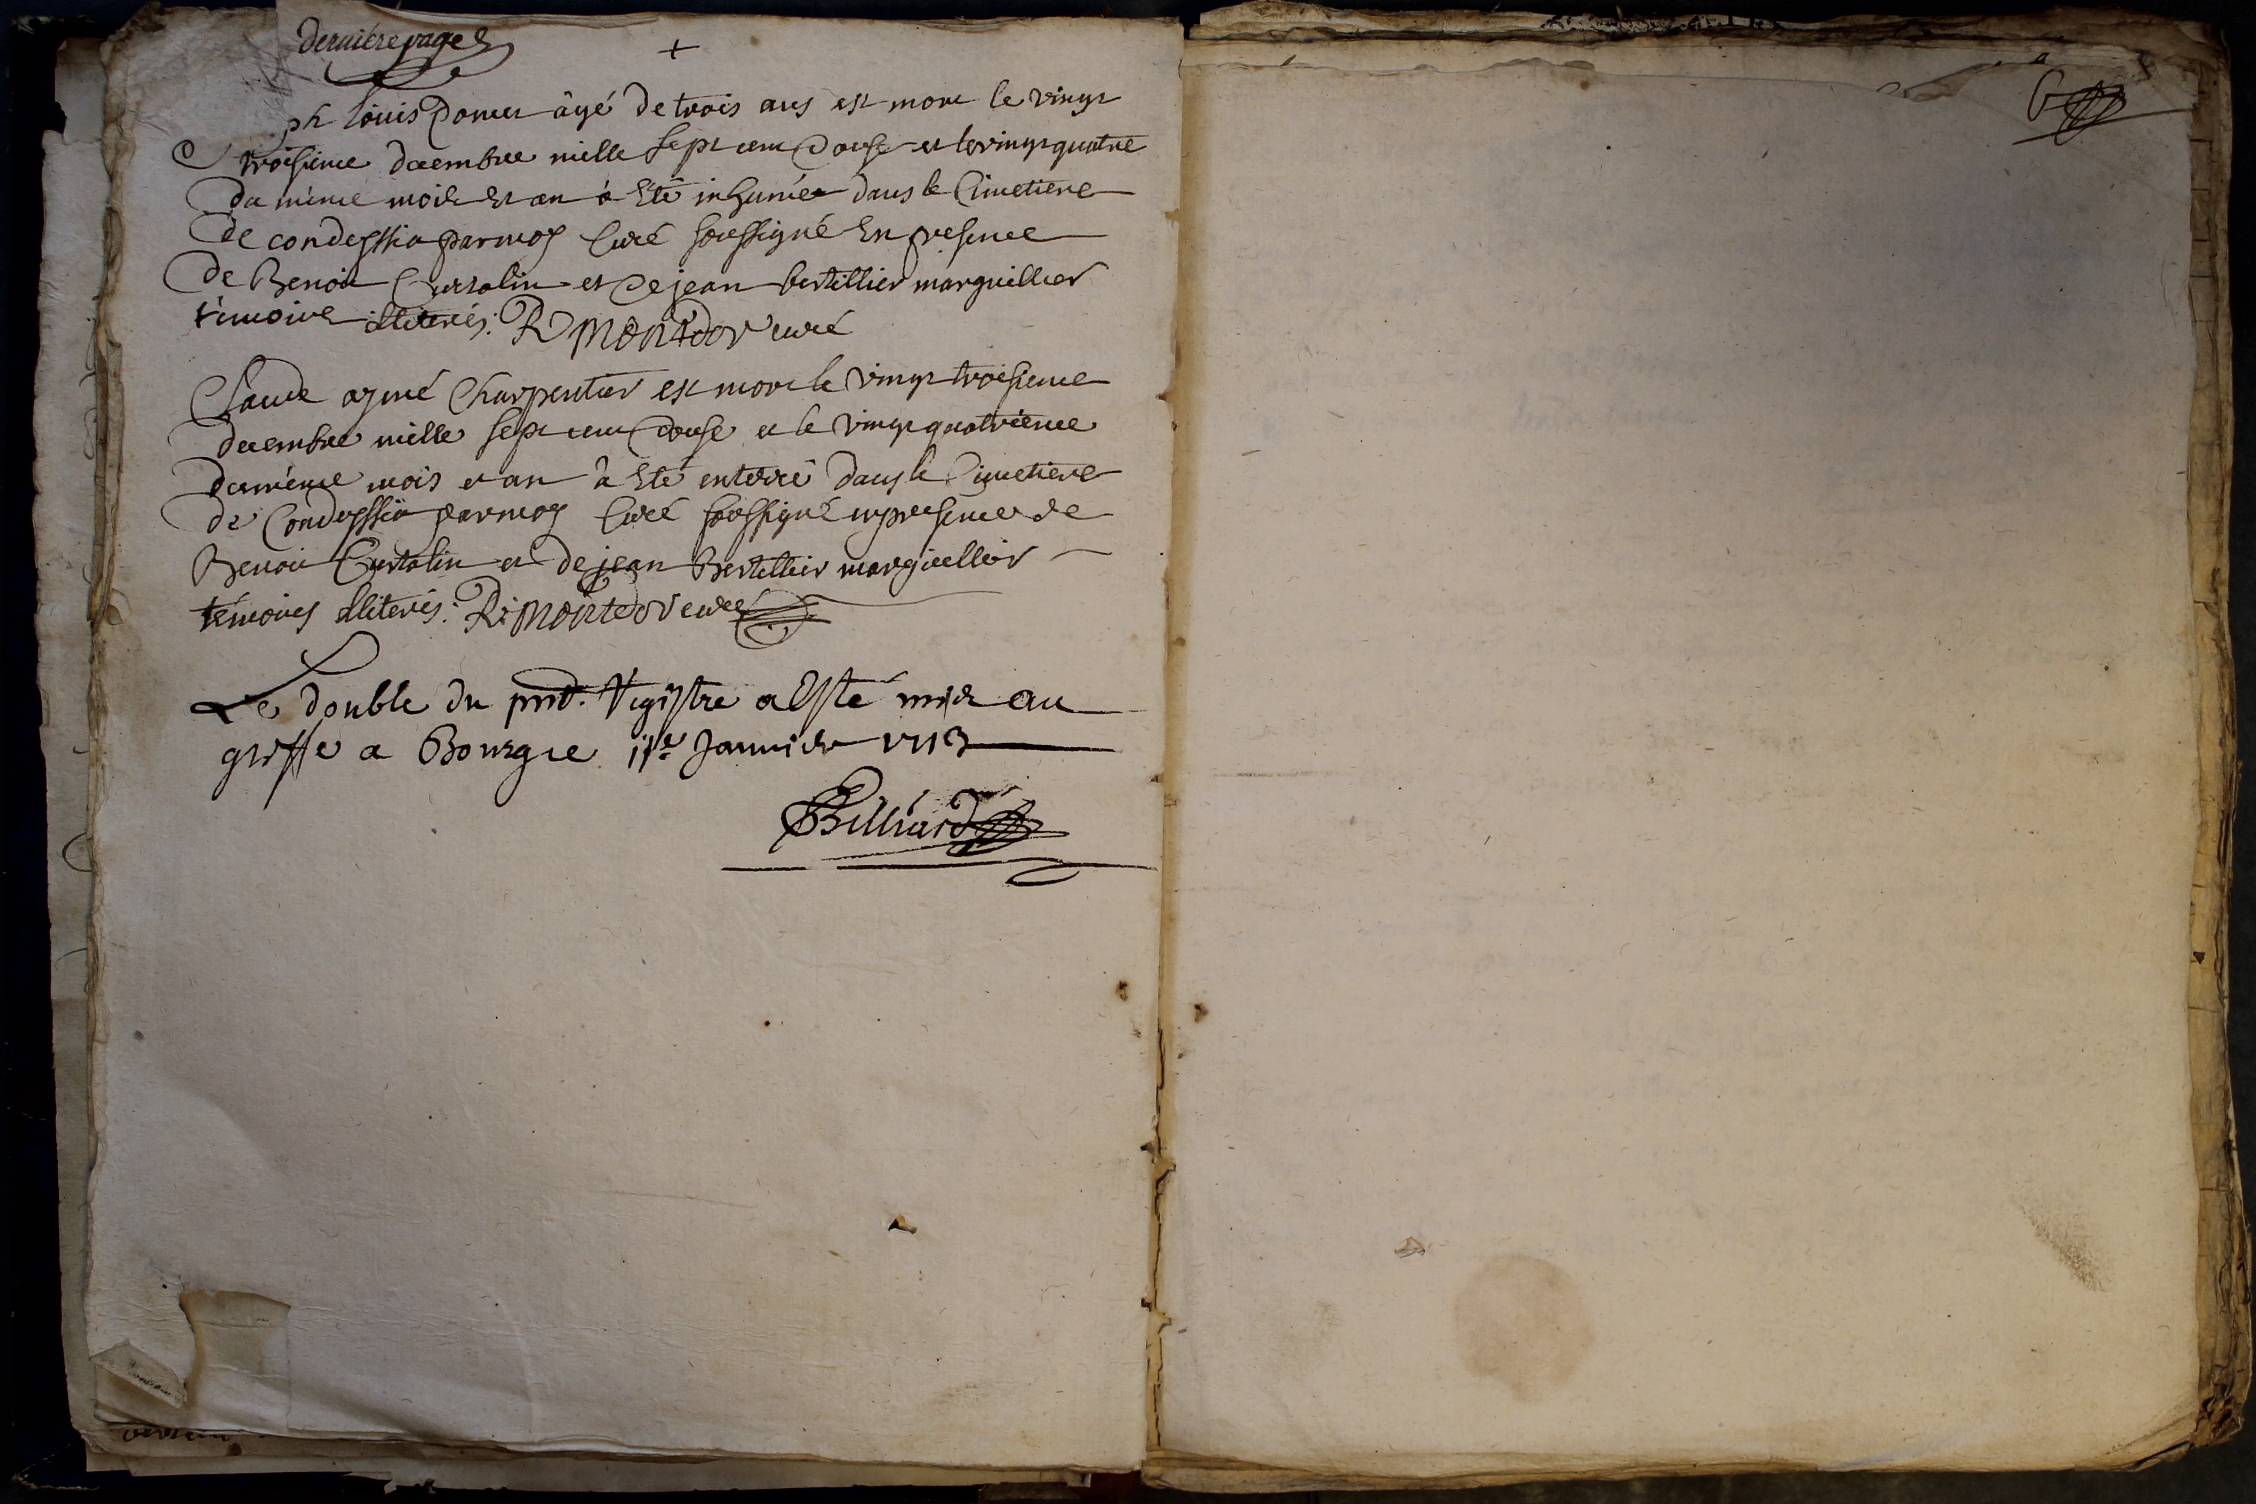 derniére page
+
ph louis Donnet âgé de trois ans est mort le vingt
troisieme decembre mille sept cent douse et le vingt quatre
du même mois et an à Eté inhumée dans le Cimetiere
de condeyssia par moy Curé soussigné En presence
de Benoit Curtalin et de jean bertillier marguillier
témoins illiterés: R Montdor curé
Claude aymé Charpentier est mort le vingt troisieme
decembre mille sept cent douse et le vingt quatriéme
du même mois et an à Eté enterré dans le Cimetiere
de Condeyssia par moy Curé soussigné en presence de
Benoit Curtalin et de jean Bertillier marguellier
témoins illiterés: R: Montdor curé
Le double du pnt. Regitstre a Esté mis au
greffe a Bourg ce Janvier 1713
Billiard
6